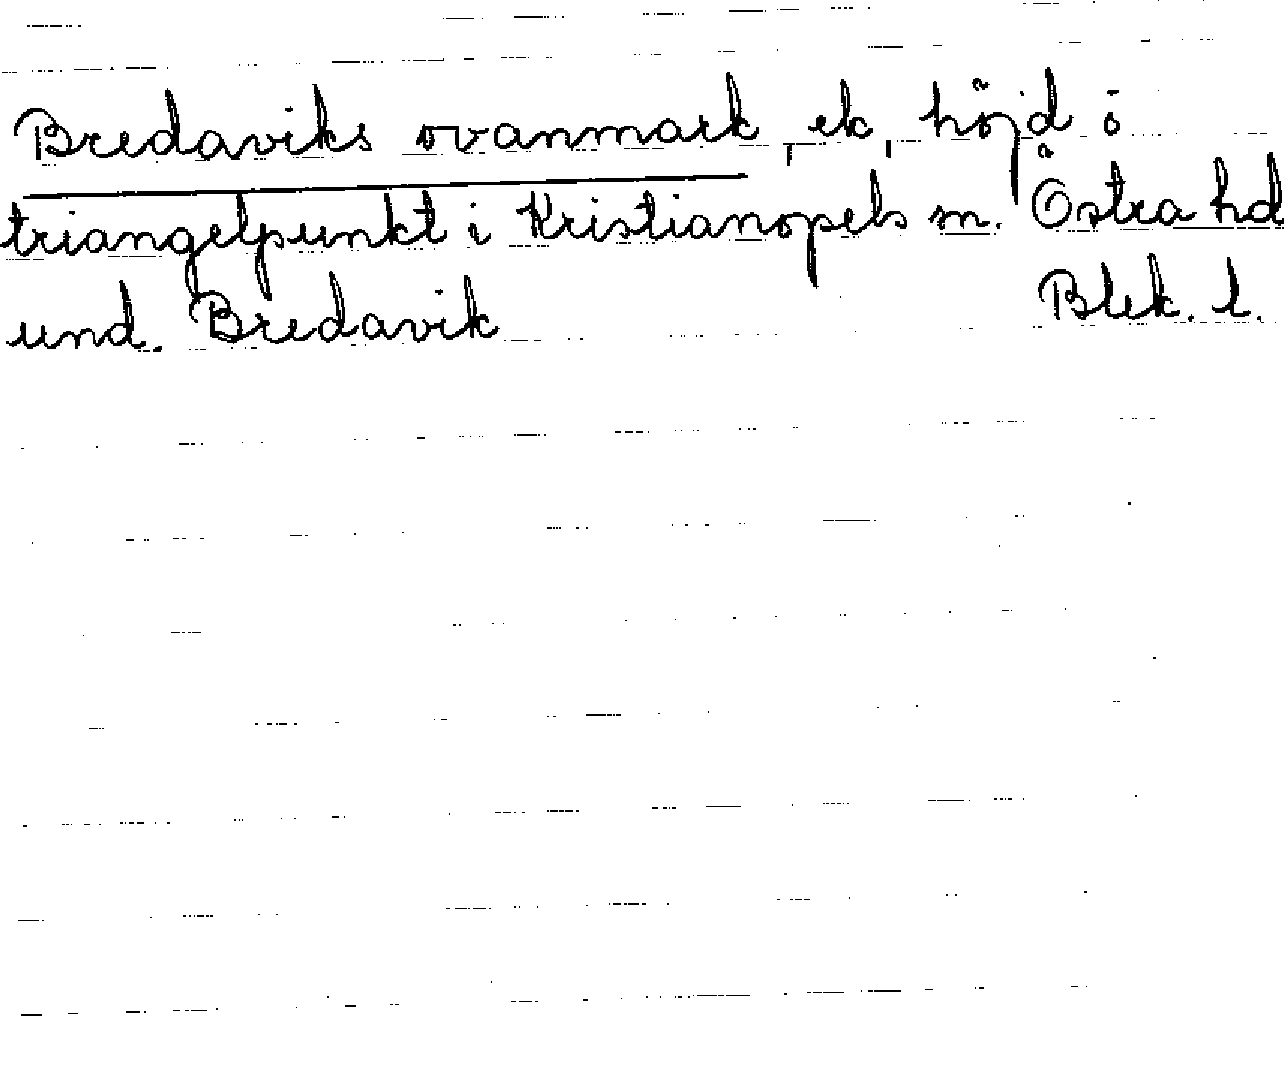 Bredaviks ovanmark, ek, höjd ö
triangelpunkt i Kristianopels sn. Östra hd
und. Bredavik Blek. l.